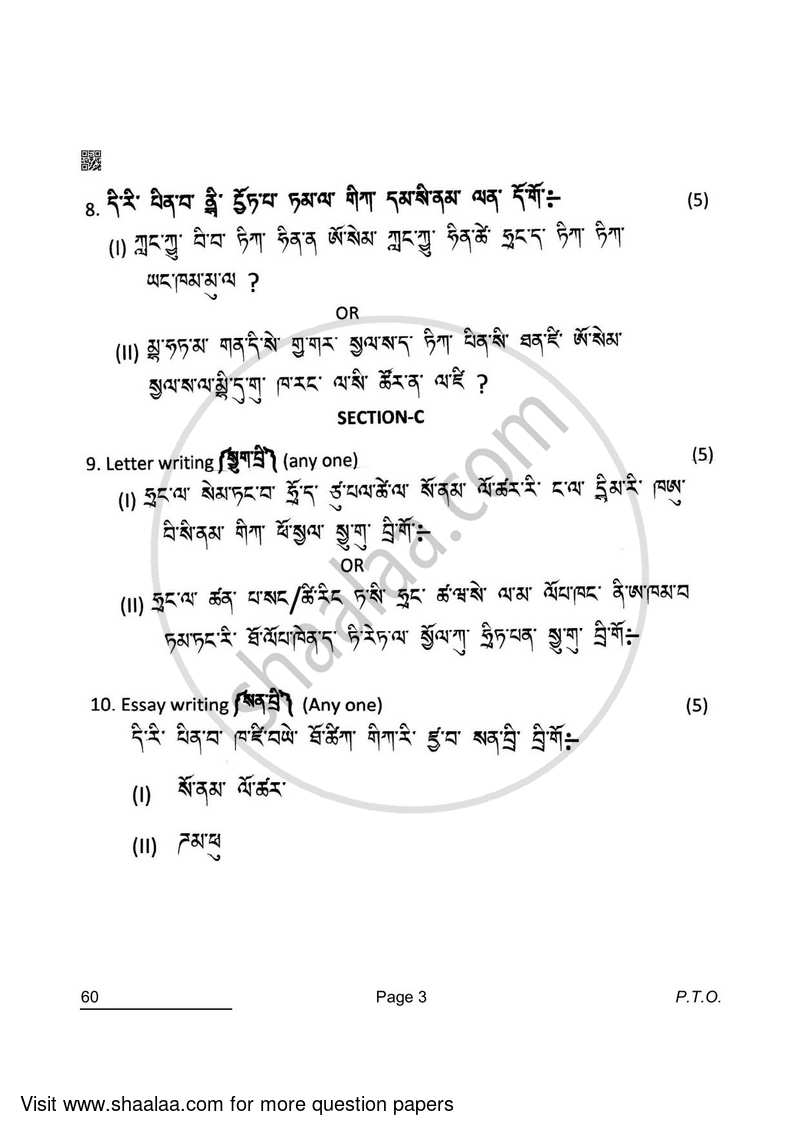 8. དི་རི་ པིན་བ་ རྡི་ དྲོཏ་བ་ ཏམ་ལ་ གིཀ་ དམ་སི་ནམ་ ལན་ དོ་གོ་÷ (5)
(I) ཀླང་ཀྱུ་ པི་བ་ ཏིཀ་ ཧིན་ན ཨོ་སེམ་ ཀླང་ཀྱུ་ ཧིན་ཚེ་ ཧྲང་ད་ ཏིཀ་ ཏིཀ་
ཡང་ཁམ་མུ་ལ ?
OR
(II) མྷ་ཧཏ་མ་ གན་དི་སེ་ གྱ་གར་ སྱལ་ས་ད་ ཏིཀ་ པིན་སི་ ཐན་ཛི་ ཨོ་སེམ་
སྱལ་ས་ལ་མྷི་དུ་གུ་ ཁ་རང་ ལ་སི་ ཚོར་ན་ ལ་ཛི ?
SECTION-C
9. Letter writing (སྱུག་བྲི) (any one) (5)
(I) ཧྲང་ལ་ སེམ་ཏང་བ་ ཧྲོ་ད་ ཙུ་པལ་ཚེ་ལ་ སོ་ནམ་ ལོ་ཚར་རི་ ང་ལ་ དྷིམ་རི་ ཁཨུ་
པི་སི་ནམ་ གིཀ་ ཕོ་སྱལ་ སྱུ་གུ་ བྲི་གོ་÷
OR
(II) ཧྲང་ལ་ ཚན་ པ་སང/ཚེ་རིང་ ཏ་སི་ ཧྲང་ ཚ་ཝ་སེ་ ལ་མ་ ལོབ་ཁང་ ནི་ཨ་ཁམ་བ
ཏམ་ཏང་རི་ ཐོ་ལོབ་ཁེན་ད་ ཏི་རེཏ་ལ་ སྱོལ་ཀུ་ ཧྲིཏ་པན་ སྱུ་གུ་ བྲི་གོ་÷
10. Essay writing (སན་བྲི) (Any one) (5)
དི་རི་ པིན་བ་ ཁ་ཛི་བཡེ་ ཐོ་ཚིཀ་ གིཀ་རི་ ཛྱ་བ་ སན་བྲི་ བྲི་གོ་÷
(I) སོ་ནམ་ ལོ་ཚར་
(II) ཌམ་ཕུ
60
Page 3
P.T.O.
shaalaa.com
Visit www.shaalaa.com for more question papers